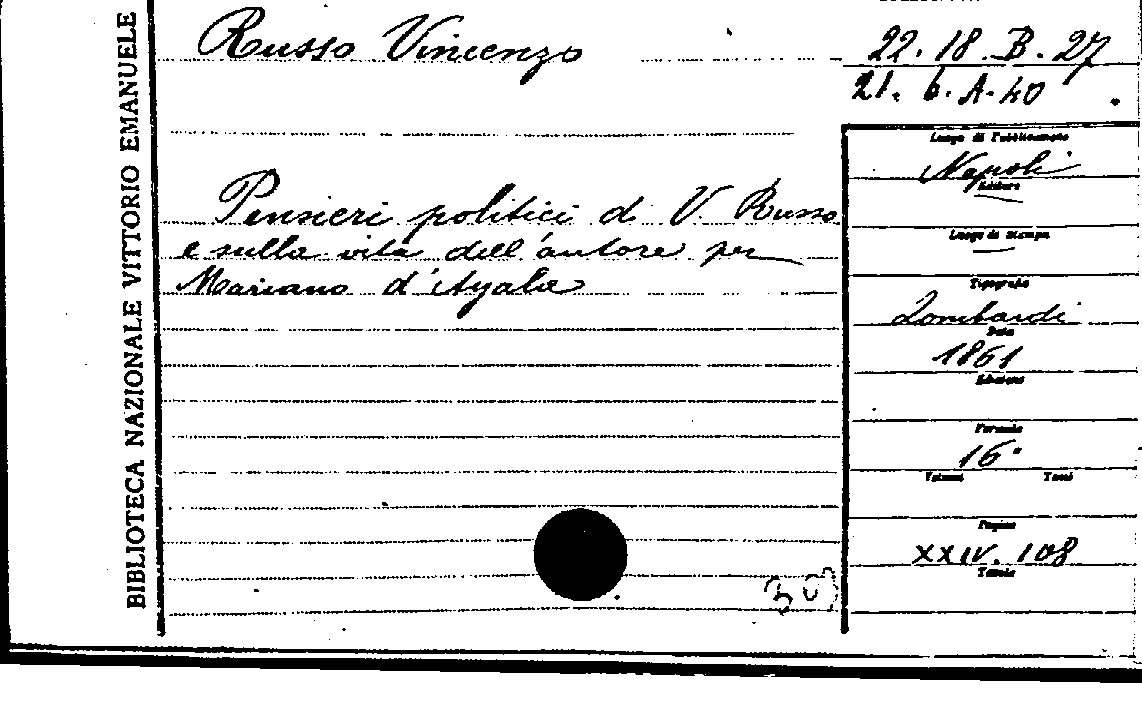 BIBLIOTECA NAZIONALE VITTORIO EMANUELE
Russo Vincenzo
22. 18. B. 27
21. 6. A. 40
Pensieri politici di V. Russo
e sulla vita dell'autore per
Mariano d'Ayala
Luogo di Pubblicazione
Napoli
Editore
Luogo di Stampa
Tipografia
Lombardi
Data
1861
Edizione
Formato
16°
Volumi Tomi
Pagine
XXIV. 108
Tavole